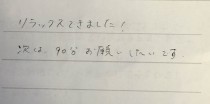 リラックスできました！
次は、90分お願いしたいです。